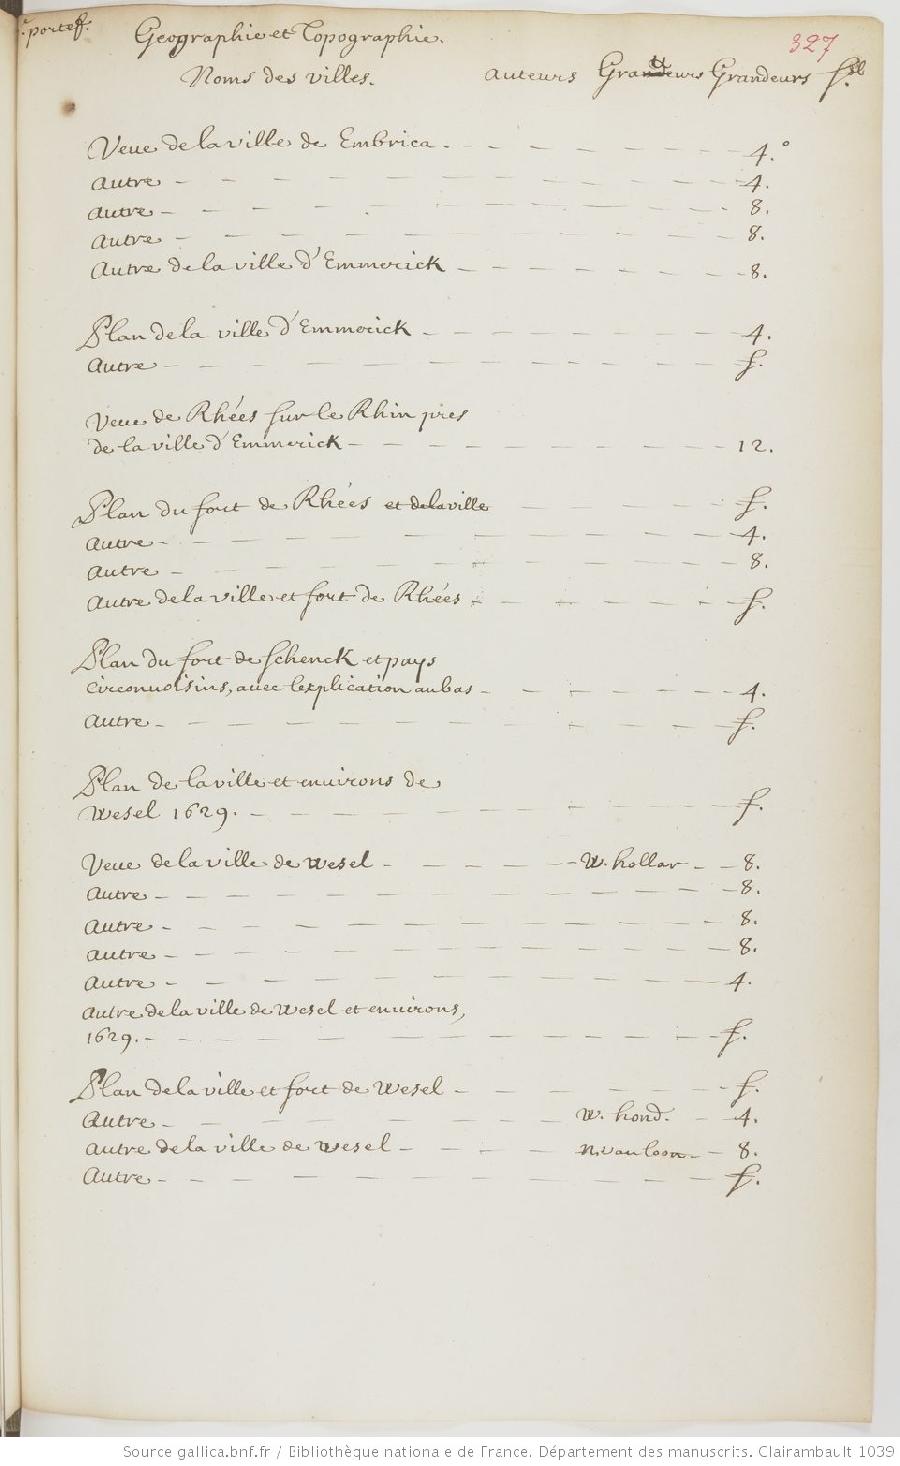 portef. Geographie et Topographie. 327
Noms des villes. auteurs Graveurs Grandeurs f.
Veue de la ville de Embrica - 4.°
autre - 4.
autre - 8.
autre - 8.
Autre de la ville d'Emmerick - 8.
Plan de la ville d'Emmerick - 4.
autre - f.
Veue de Rhées sur le Rhin pres
de la ville d'Emmerick - 12.
Plan du fort de Rhées et de la ville f.
autre - 4.
autre - 8.
autre de la ville et fort de Rhées - f.
Plan du fort de Schenck et pays
circonuoisins, auec l'explication au bas - 4.
autre - f.
Plan de la ville et enuirons de
Wesel 1629. - f.
Veue de la ville de Wesel - W. hollar - 8.
autre - 8.
autre - 8.
autre - 8.
autre - 4.
autre de la ville de Wesel et enuirons,
1629. - f.
Plan de la ville et fort de Wesel - f.
Autre - W. hond. - 4.
autre de la ville de Wesel - n. van loon - 8.
Autre - f.
Source gallica.bnf.fr / Bibliothèque nationale de France. Département des manuscrits. Clairambault 1039